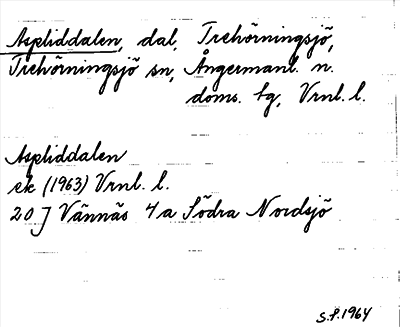 Aspliddalen, dal, Trehörningsjö,
Trehörningsjö sn, Ångermanl. n.
doms. tg, Vrnl. l.
Aspliddalen
ek (1963) Vrnl. l.
20 J Vännäs 4a Södra Nordsjö
S.P. 1964